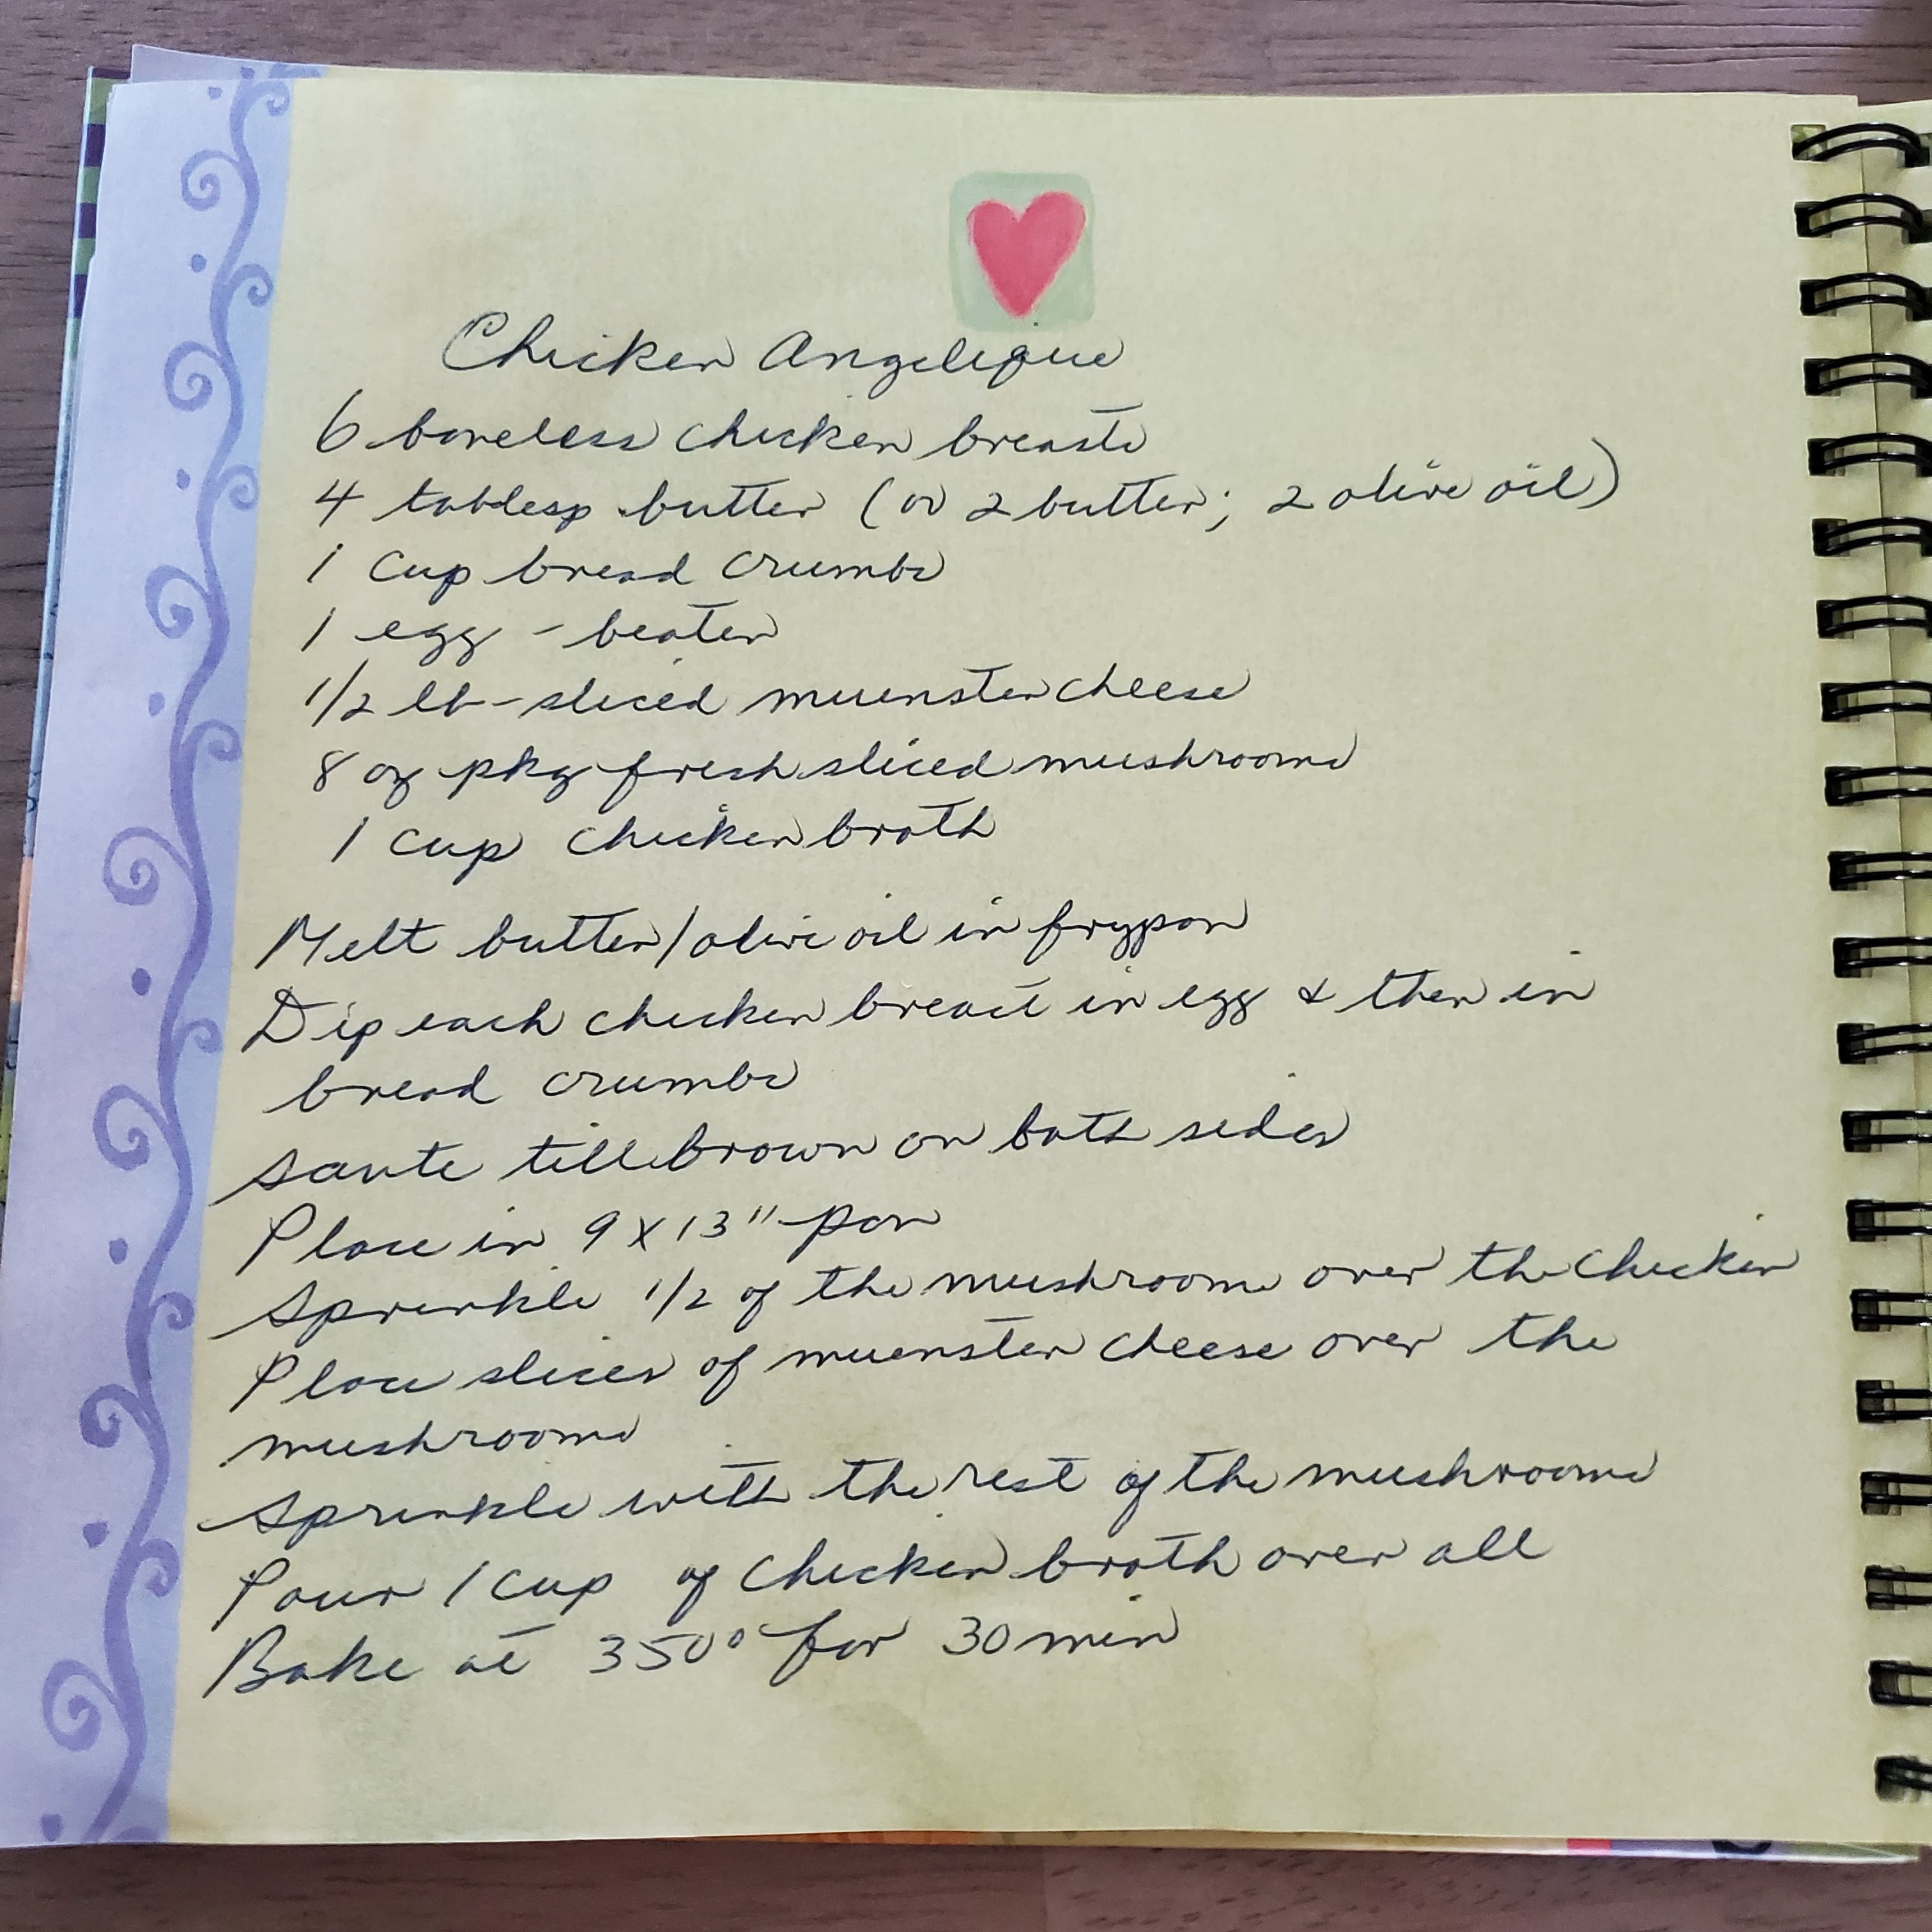 Chicken Angelique
6 boneless chicken breasts
4 tablesp butter (or 2 butter; 2 olive oil)
1 cup bread crumbs
1 egg - beaten
1/2 lb - sliced muenster cheese
8 oz pkg fresh sliced mushrooms
1 cup chicken broth
Melt butter/olive oil in frypan
Dip each chicken breast in egg & then in
bread crumbs
saute till brown on both sides
Place in 9 x 13" pan
Sprinkle 1/2 of the mushrooms over the chicken
Place slices of muenster cheese over the
mushrooms
Sprinkle with the rest of the mushrooms
Pour 1 cup of chicken broth over all
Bake at 350° for 30 min